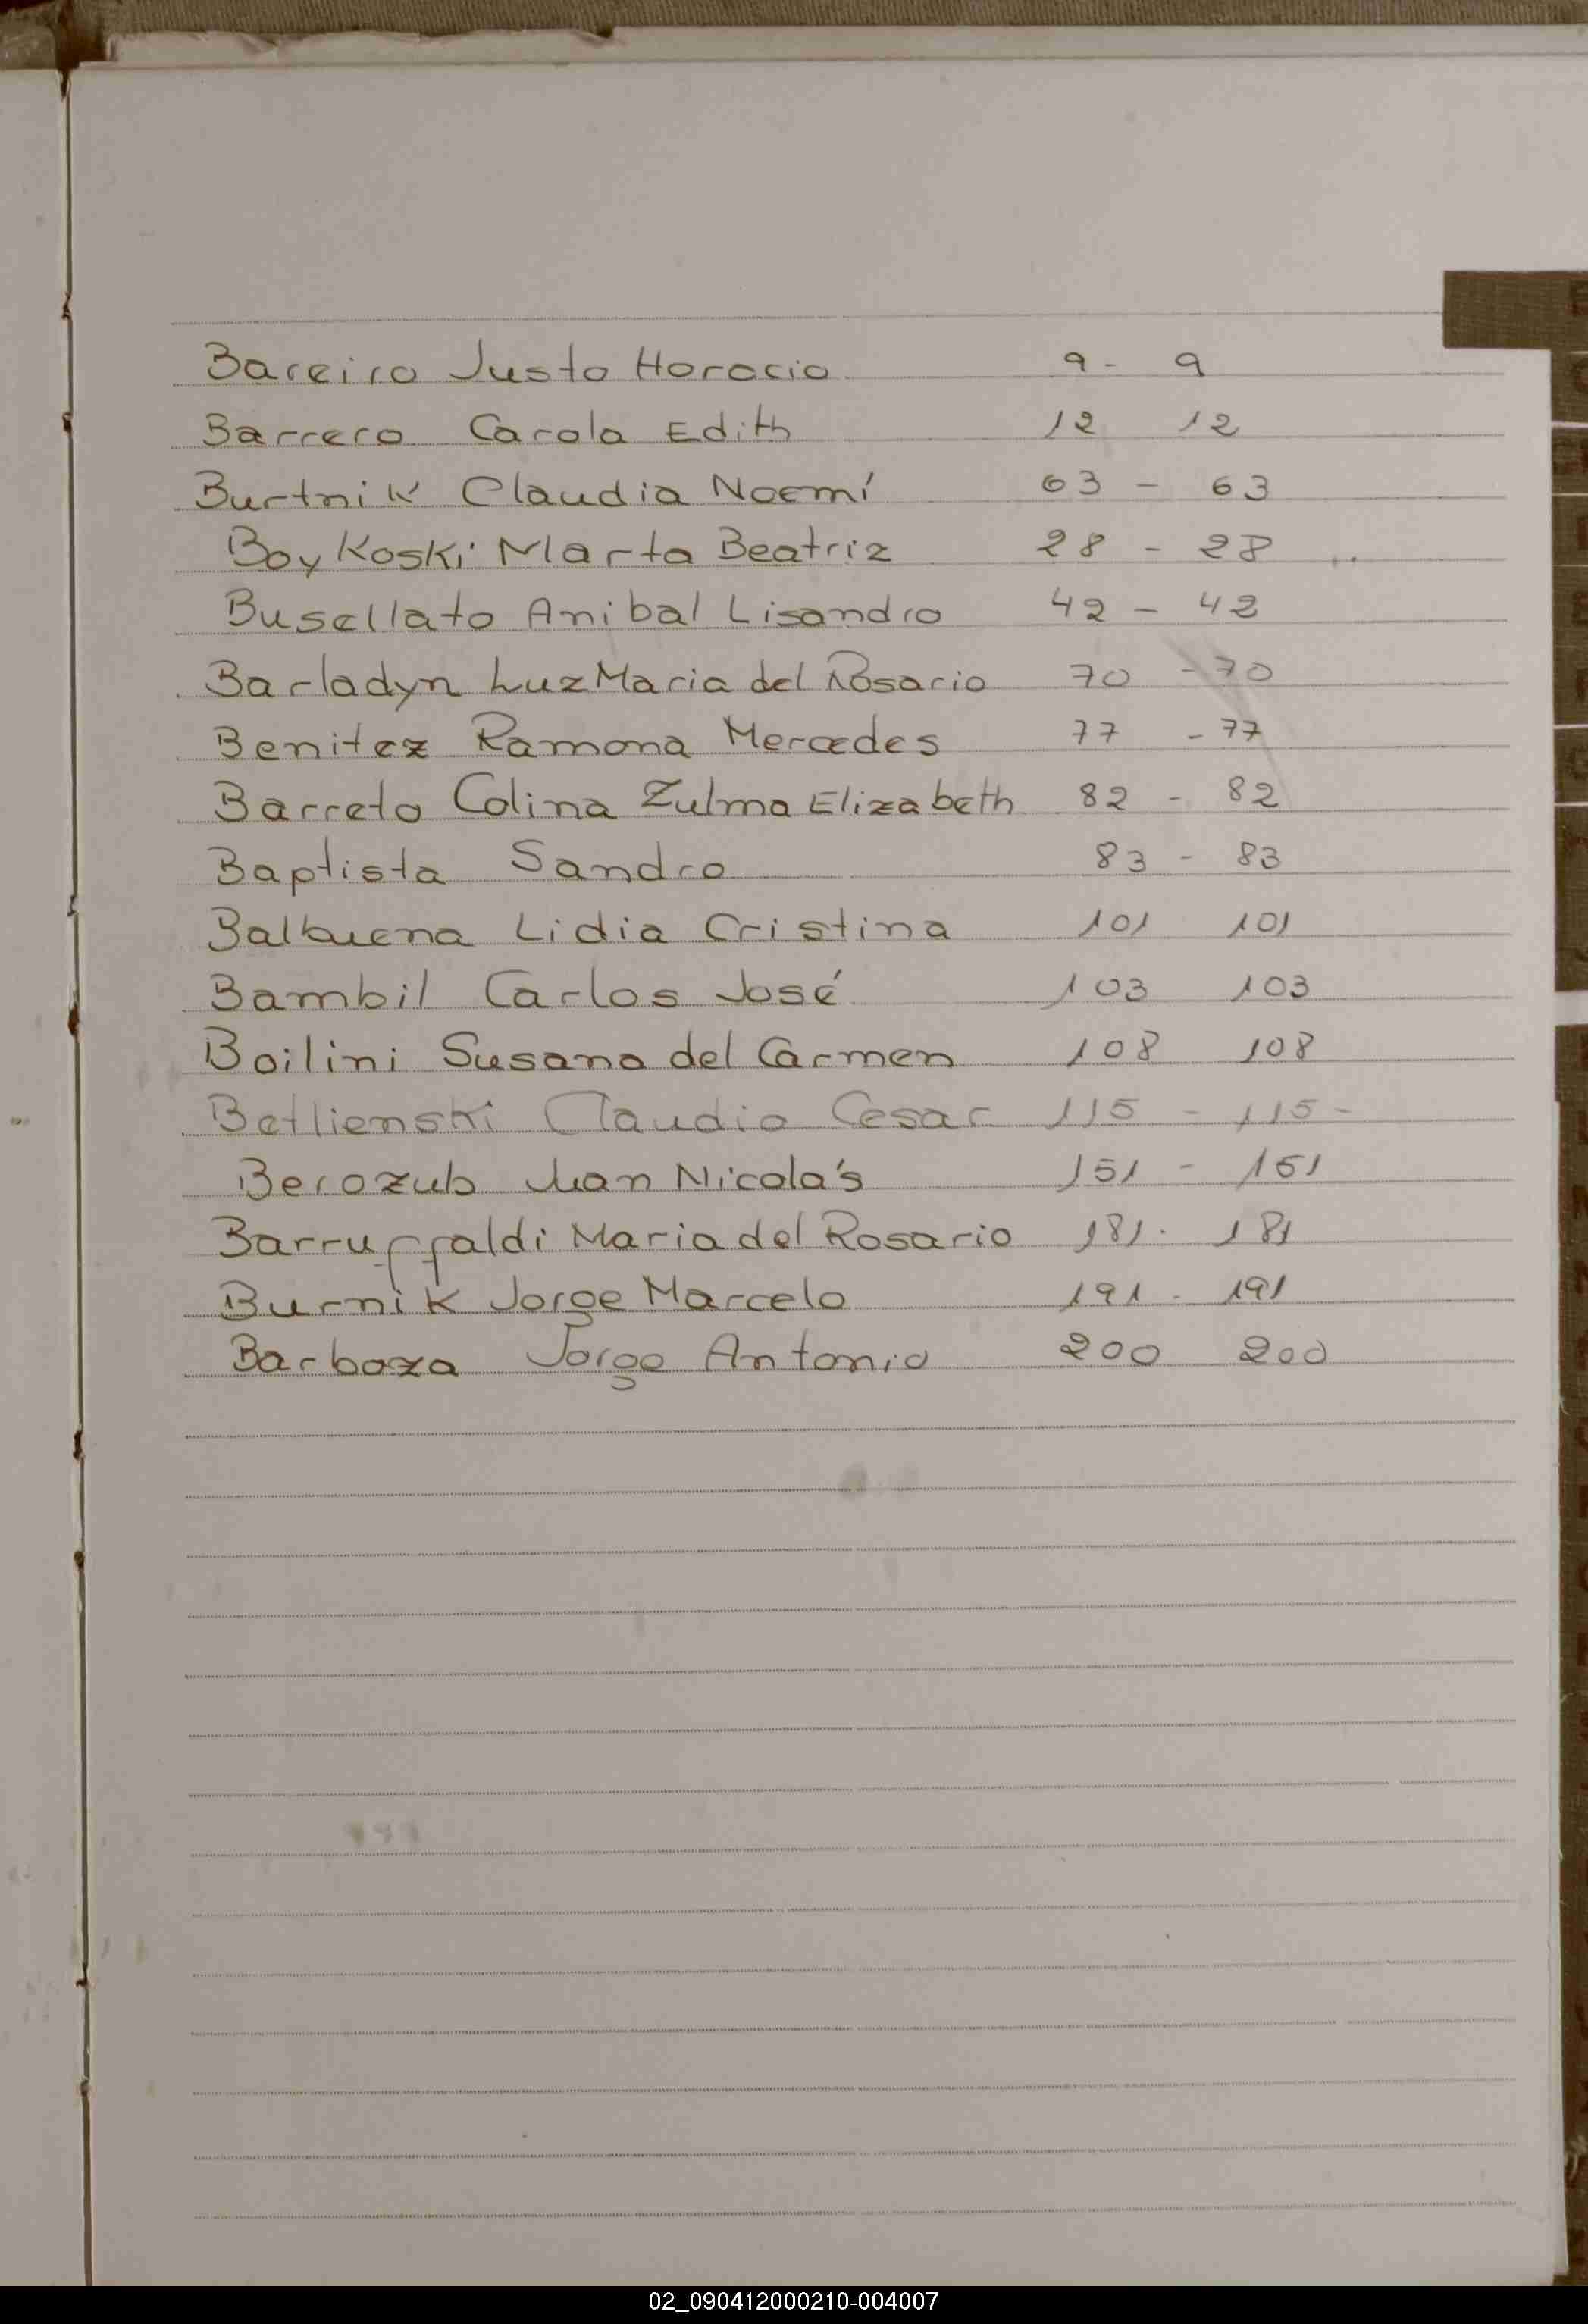 Bareiro Justo Horacio 9 - 9
Barrero Carola Edith 12 12
Burtnik Claudia Noemí 63 - 63
Boykoski Marta Beatriz 28 - 28
Busellato Anibal Lisandro 42 - 42
Barladyn Luz Maria del Rosario 70 - 70
Benitez Ramona Mercedes 77 - 77
Barreto Colina Zulma Elizabeth 82 - 82
Baptista Sandro 83 - 83
Balbuena Lidia Cristina 101 101
Bambil Carlos José 103 103
Boilini Susana del Carmen 108 108
Betlienski Claudio Cesar 115 - 115 -
Berozub Juan Nicolás 151 - 151
Barruffaldi Maria del Rosario 181. 181
Burnik Jorge Marcelo 191 - 191
Barboza Jorge Antonio 200 200
02_090412000210-004007